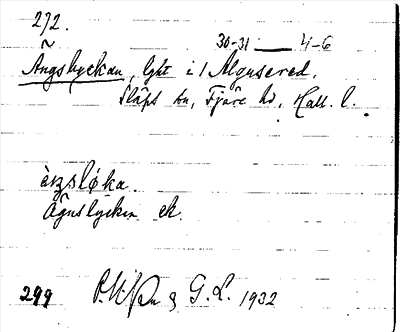 272.
30-31 — 4-6
Ängslyckan, lght i 1 Algusered.
Släps sn, Fjäre hd, Hall. l.
èŋslø̀ka.
Ägnslycken ek.
299 P.N-son & G.L. 1932